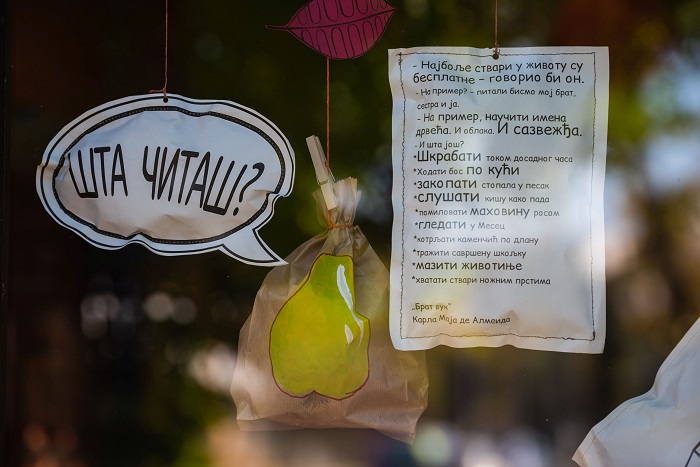 ШТА ЧИТАШ!?
- Најбоље ствари у животу су
бесплатне – говорио би он.
- На пример? – питали бисмо мој брат,
сестра и ја.
- На пример, научити имена
дрвећа. И облака. И сазвежђа.
- И шта још?
*Шкрабати током досадног часа
*Ходати бос по кући
*закопати стопала у песак
*слушати кишу како пада
*помиловати маховину росом
*гледати у Месец
*котрљати каменчић по длану
*тражити савршену шкољку
*мазити животиње
*хватати ствари ножним прстима
„Брат вук”
Карла Маја де Алмеида